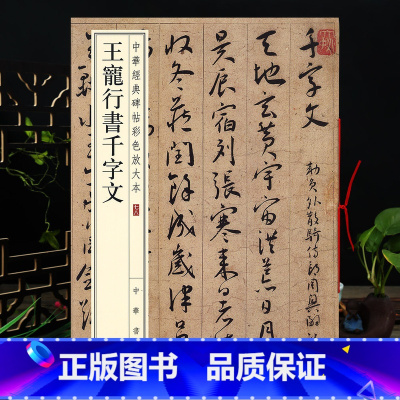 千字文
勅員外散騎侍郎周興嗣
天地玄黃宇宙洪荒日月
昃辰宿列張寒来暑
收冬藏閏餘成歲律吕
中華經典碑帖彩色放大本
王寵行書千字文
中華書